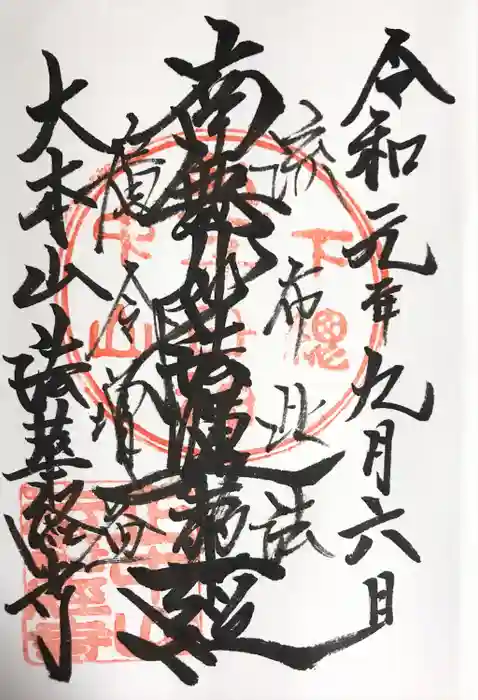 令和元年九月六日
流布此法
南無妙法蓮華経
廣令増益
大本山法華経寺